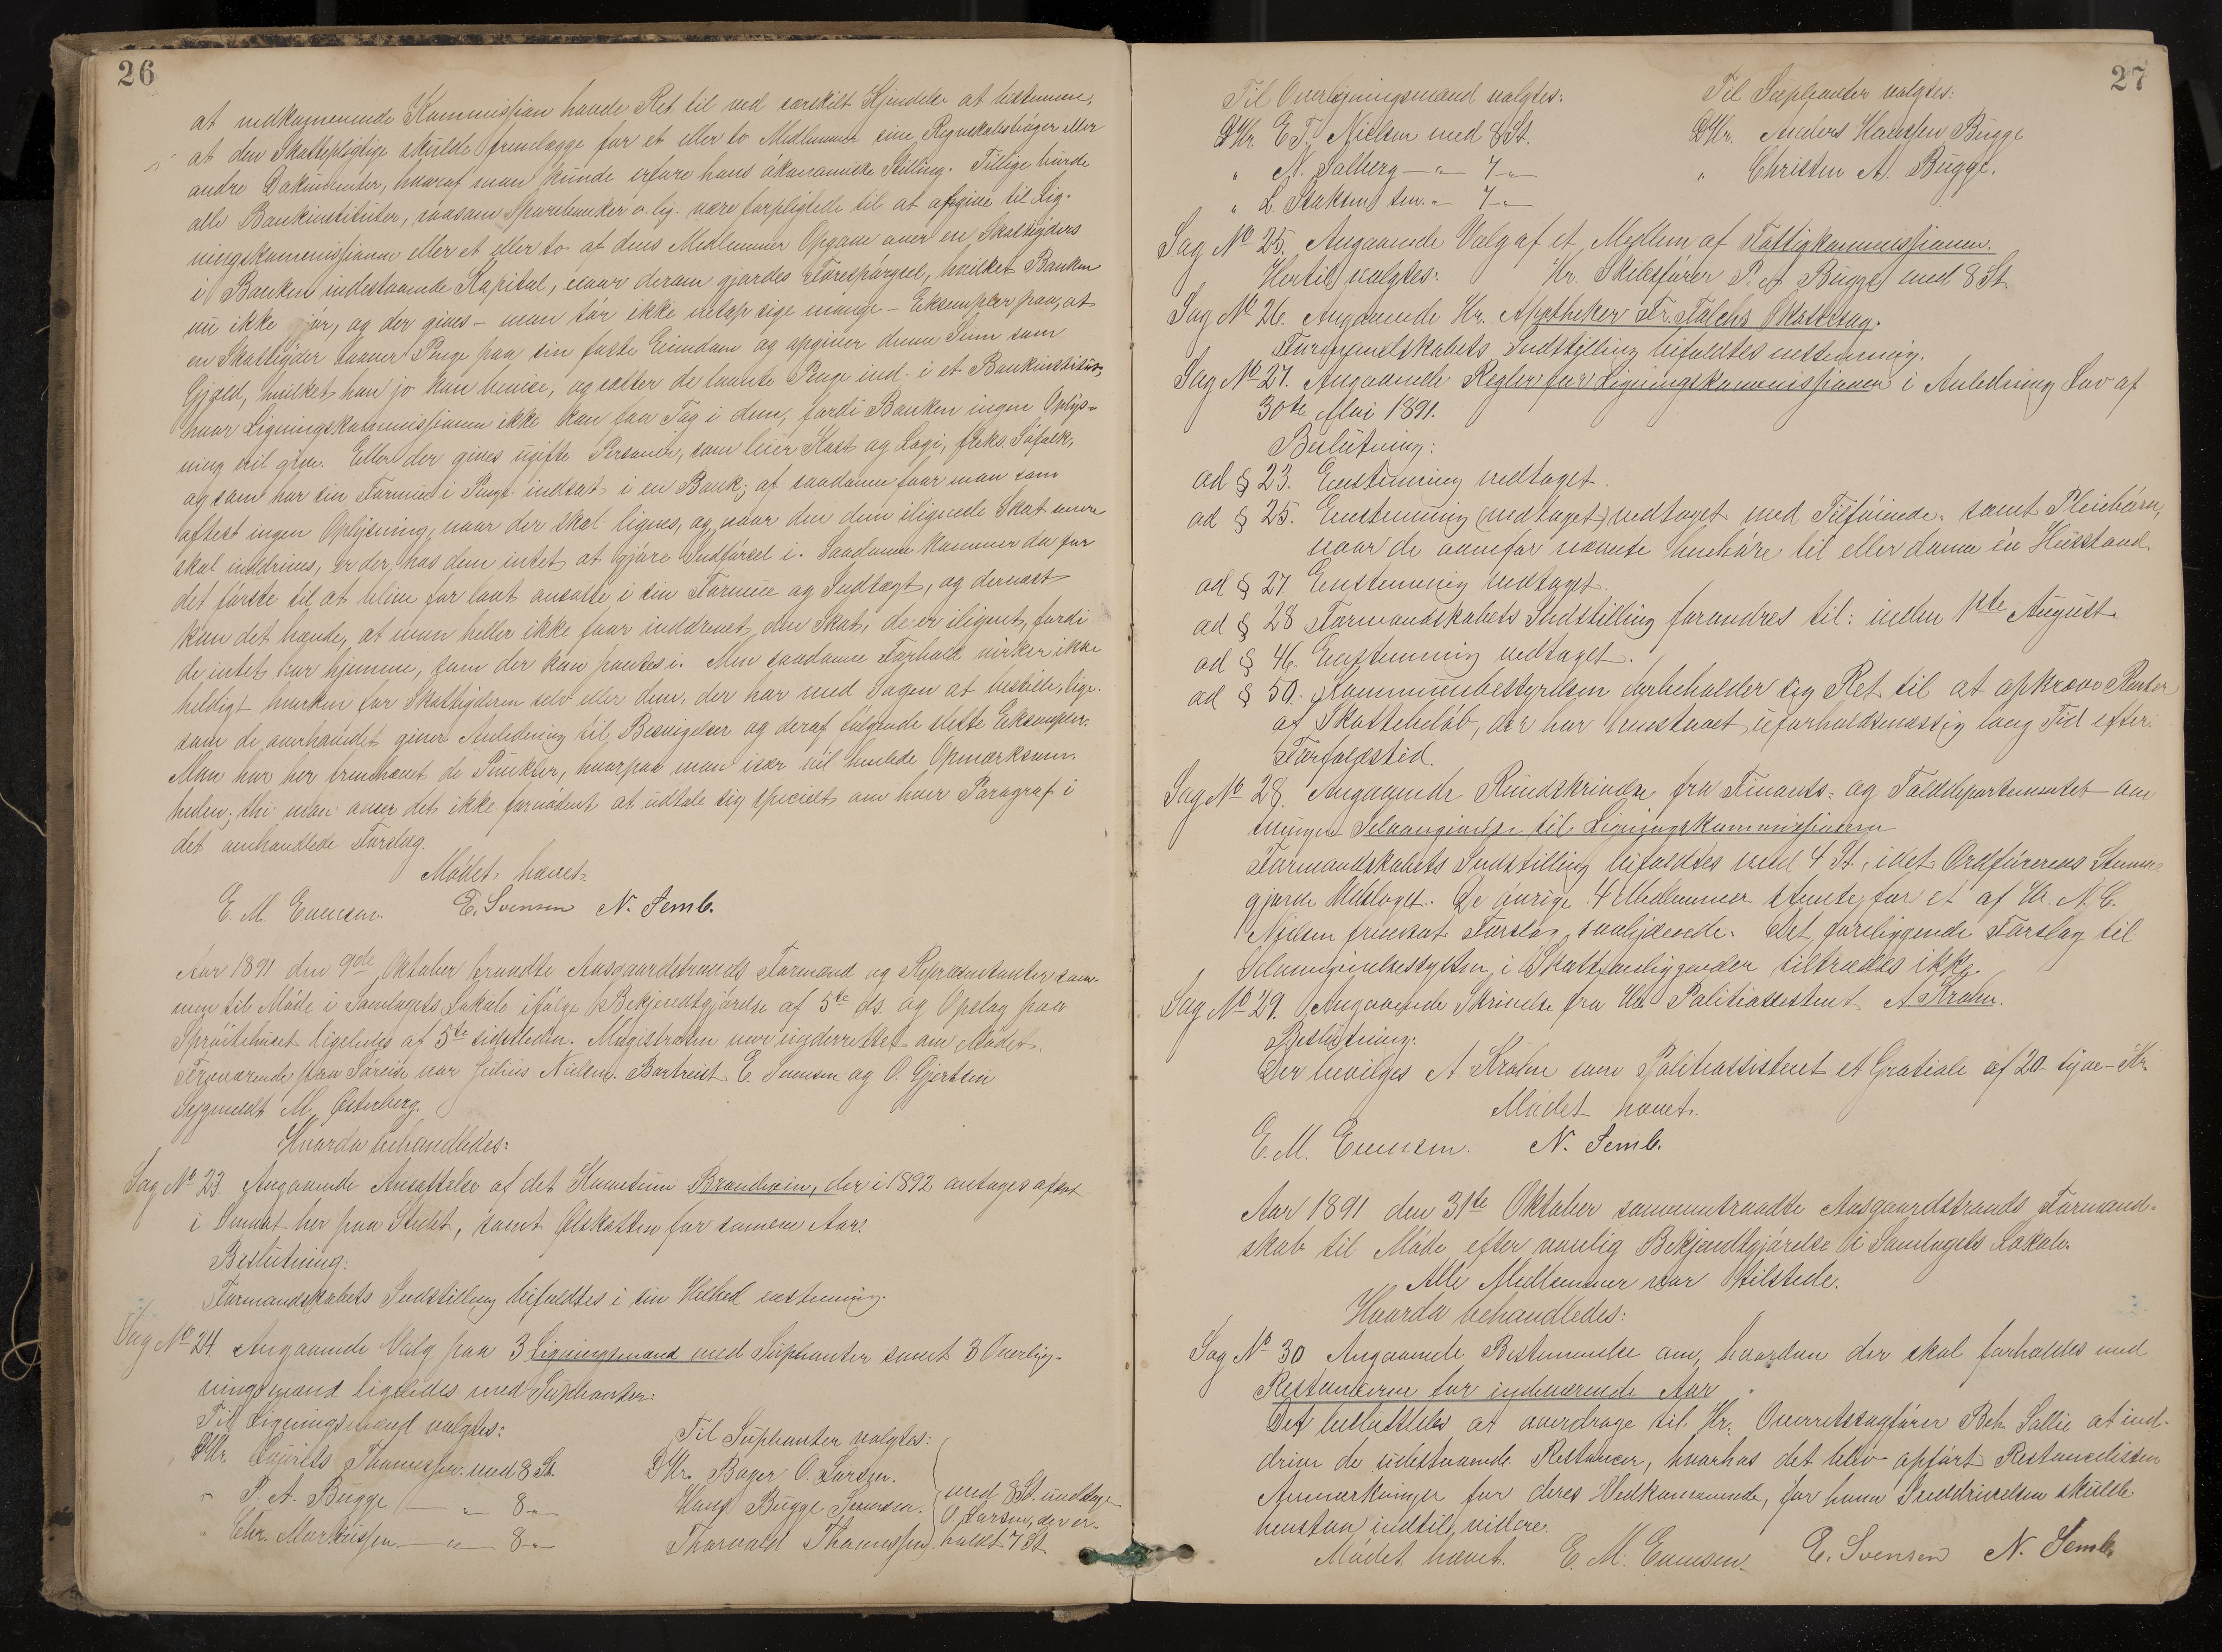 26
at vedkommende Kommission havde Ret til ved særskilt Kjendelse at bestemme,
at den Skattepligtige skulde fremlægge for et eller to Medlemmer sine Regnskabsbøger eller
andre Dokumenter, hvoraf man kunde erfare hans økonomiske Stilling. Tillige burde
alle Bankinstituter, saasom Sparebanker o. lig. være forpligtede til at afgive til Lig-
ningskommissionen eller et eller to af dens Medlemmer Opgave over en Skatteyders
i Banken indestaaende Kapital, naar derom gjordes Forespørgsel, hvilket Banken
nu ikke gjør, og der gives – man tør ikke netop sige mange – Eksempler paa, at
en Skatteyder laaner Penge paa sin faste Eiendom og opgiver denne Sum som
Gjæld, hvilket han jo kan bevise, og sætter de laante Penge ind i et Bankinstitut,
hvor Ligningskommissionen ikke kan faa Tag i dem, fordi Banken ingen Oplys-
ning vil give. Eller der gives ugifte Personer, som leier Kost og Logi, f.eks. Søfolk,
og som har sin Formue i Penge indsat i en Bank; af saadanne faar man som
oftest ingen Oplysning, naar der skal lignes, og naar den dem ilignede Skat
skal inddrives, er der hos dem intet at gjøre Indførsel i. Saadanne kommer da for
det første til at blive for lavt ansatte i sin Formue og Indtægt, og dernæst
kan det hænde, at man heller ikke faar inddrevet den Skat, de er ilignet, fordi
de intet har hjemme, som der kan pantes i. Men saadanne Forhold virker ikke
heldigt hverken for Skatteyderen selv eller dem, der har med Sagen at bestille, lige-
som de overhovedet giver Anledning til Besvigelser og deraf følgende slette Eksempler.
Man har her fremhævet de Punkter, hvorpaa man især vil henlede Opmærksom-
heden; thi man anser det ikke fornødent at udtale sig specielt om hver Paragraf i
det omhandlede Forslag.
Mødet hævet.
E. M. Evensen. E. Svensen N. Semb.
Aar 1891 den 9de Oktober traadte Aasgaardstrands Formænd og Repræsentanter sam-
men til Møde i Samlagets Lokale ifølge Bekjendtgjørelse af 5te ds. og Opslag paa
Sprøitehuset ligeledes af 5te sidstleden. Magistraten var underrettet om Mødet.
Fraværende paa Søreise var Julius Nielsen. Bortreist E. Svensen og O. Gjertsen
Sygmeldt M. Østerberg.
Hvorda behandledes:
Sag No 23 Angaaende Ansættelse af det Kvantum Brændevin, der i 1892 antages afsat
i Smaat her paa Stedet, samt Ølskatten for samme Aar.
Beslutning:
Formandskabets Indstilling bifaldtes i sin Helhed enstemmig.
Sag No 24 Angaaende Valg paa 3 Ligningsmænd med Suplianter samt 3 Overlig-
ningsmænd ligeledes med Suplianter:
Til Ligningsmænd valgtes:
DHr. Laurits Thomessen. med 8 St.
" P. A. Bugge – " 8 "
" Chr. Markussen – " 8 "
Til Suplianter valgtes:
DHr. Bager O. Larsen.
Hans Bugge Svensen.
Thorvald Thomessen.
med 8 St. undtage
O. Larsen, der er-
holdt 7 St.
27
Til Overligningsmænd valgtes:
DHr. E. T. Nielsen med 8 St.
" N. Solberg – " 7 "
" L. Isaksen sen. " 7 "
Til Suplianter valgtes:
DHr. Anders Hanssen Bugge
" Christen A. Bugge.
Sag No 25. Angaaende Valg af et Medlem af Fattigkommissionen.
Hertil valgtes: Hr. Skibsfører P. A. Bugge med 8 St.
Sag No 26. Angaaende Hr. Apotheker Fr. Falchs Skattesag.
Formandskabets Indstilling bifaldtes enstemmig.
Sag No 27. Angaaende Regler for Ligningskommissionen i Anledning Lov af
30te Mai 1891.
Beslutning:
ad § 23. Enstemmig vedtaget.
ad § 25. Enstemmig (vedtaget) vedtaget med Tilføiende: samt Pleiebørn,
naar de ovenfor nævnte henhøre til eller danne én Husstand.
ad § 27 Enstemmig vedtaget.
ad § 28 Formandskabets Indstilling forandres til: inden 1ste August.
ad § 46. Enstemmig vedtaget.
ad § 50. Kommunebestyrelsen forbeholder sig Ret til at opkræve Renter
af Skattebeløb, der har henstaaet uforholdsmæssig lang Tid efter
Forfaldstid.
Sag No 28. Angaaende Rundskrivelse fra Finants- og Tolddepartementet om
tvungen Selvangivelse til Ligningskommissionen
Formandskabets Indstilling bifaldtes med 4 St., idet Ordførerens Stemme
gjorde Udslaget. De øvrige 4 Medlemmer stemte for et af Hr. N. C.
Nielsen fremsat Forslag saalydende: Det foreliggende Forslag til
Selvangivelsespligten i Skatteanliggender tiltrædes ikke.
Sag No 29. Angaaende Skrivelse fra Hr. Politiassistent A. Krohn.
Beslutning:
Der bevilges A. Krohn som Politiassistent et Gratiale af 20 – tyve – Kr.
Mødet hævet.
E. M. Evensen. N. Semb.
Aar 1891 den 31te Oktober sammentraadte Aasgaardstrands Formand-
skab til Møde efter vanlig Bekjendtgjørelse i Samlagets Lokale.
Alle Medlemmer var tilstede.
Hvorda behandledes:
Sag No 30 Angaaende Bestemmelse om, hvordan der skal forholdes med
Restancerne for indeværende Aar.
Det besluttedes at overdrage til Hr. Overretssagfører Sollie at ind-
drive de udestaaende Restancer, hvorhos det blev opført Restancelisten
Anmærkninger for deres Vedkommende, for hvem Inddrivelsen skulde
henstaa indtil videre.
Mødet hævet. E. M. Evensen. E. Svensen N. Semb.